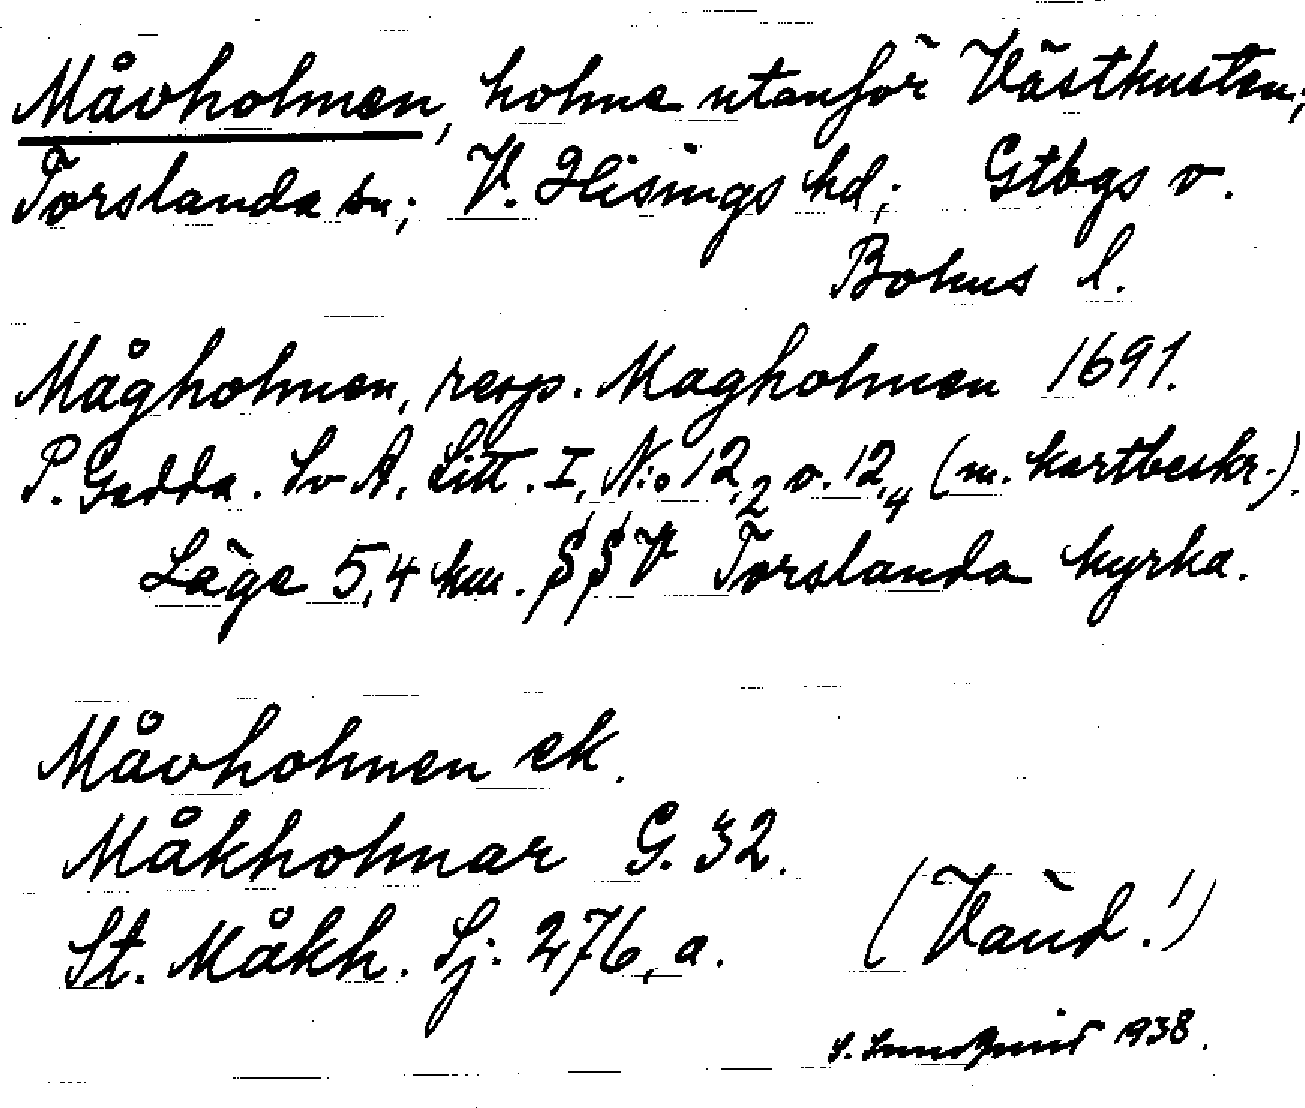 Måvholmen, holme utanför Västkusten;
Torslanda sn; V. Hisings hd; Gtbgs o.
Bohus l.
Mågholmen, resp. Magholmen 1691.
P. Gedda. Sv A. Litt. I, N:o 12,2 o. 12,4 (m. kartbeskr.).
Läge 5,4 km. §§V Torslanda kyrka.
Måvholmen ek.
Måkholmar G. 32.
St. Måkh. Sj. 276, a.
(Vänd!)
S. 1938.